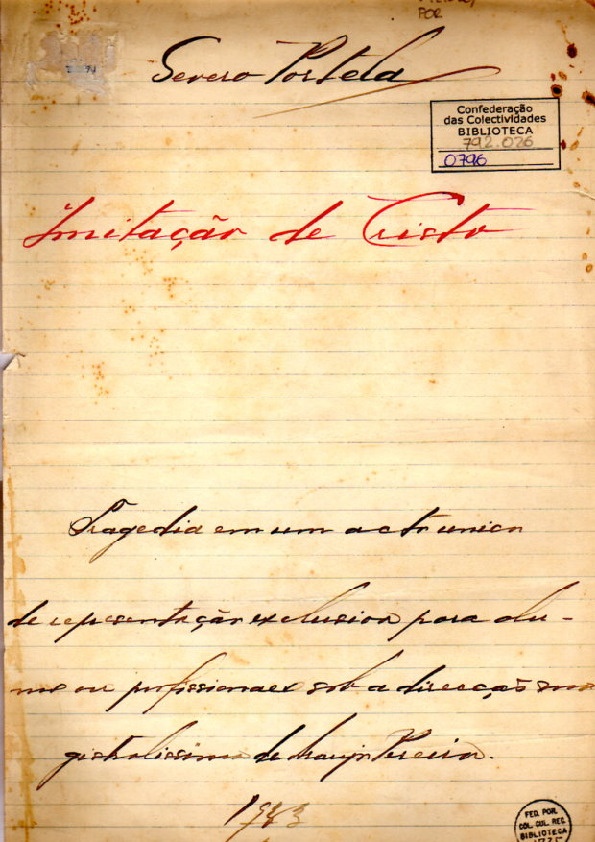 POR
Severo Portela
Confederação
das Colectividades
BIBLIOTECA
792.026
0796
Imitação de Cristo
Tragedia em um acto unico
de representação exclusiva para alu-
nos ou profissionaes sob a direcção ma
gistralissima de Araujo Pereira.
FED. POR.
COL. CUL. REC.
BIBLIOTECA